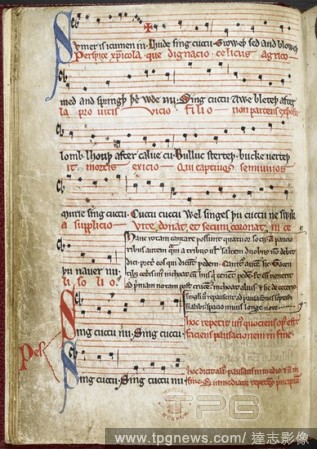 Sumer is icumen in. Lhude sing cuccu. Groweþ sed and bloweþ
Perspice xp̄icola. que dignacio celicus agrico
med and springþ þe wde nu. Sing cuccu Awe bleteþ after
la pro uitis vicio filio non parcens exposu
lomb lhouþ after calue cu. Bulluc sterteþ. bucke uerteþ
it mortis exicio Qui captiuos semiuiuos
murie sing cuccu. Cuccu cuccu Wel singes þu cuccu ne swik
a supplicio vite donat et secum coronat in ce
þu nauer nu.
li solio.
Hanc rotam cantare possunt quatuor socij. A paucio
ribus autem quam a tribus uel saltem duobus non debet
dici preter eos qui dicunt pedem. Canitur autem sic. Tacen
tibus ceteris unus inchoat cum hiis qui tenent pedem.
ad primam notam post crucem inchoat alius et sic de ceteris
Pes
Sing cuccu nu. Sing cuccu.
hoc repetit unus quociens opus est
faciens pausacionem in fine.
Sing cuccu. Sing cuccu nu
hoc dicit alius pausans in medio et non in
fine. Sed immediate repetens principium
TPG
www.tpgnews.com/達志影像